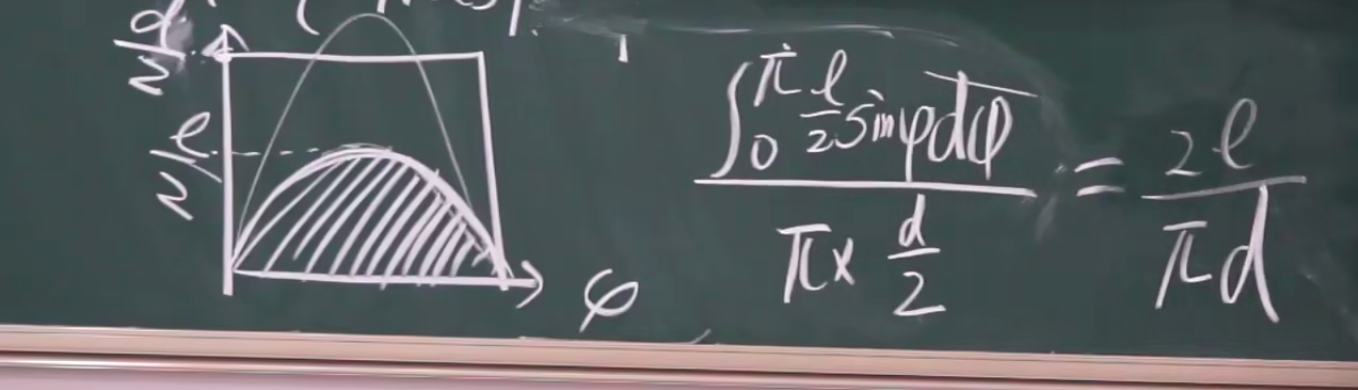 d/2
l/2
φ
∫₀^π l/2 sinφdφ / π× d/2 = 2l / πd